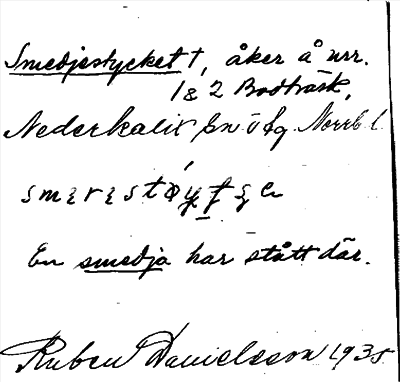 Smedjestycket †, åker å nrr.
1 & 2 Bodträsk,
Nederkalix sn o. fg Norrb. l.
En smedja har stått där.
Ruben Danielsson 1935